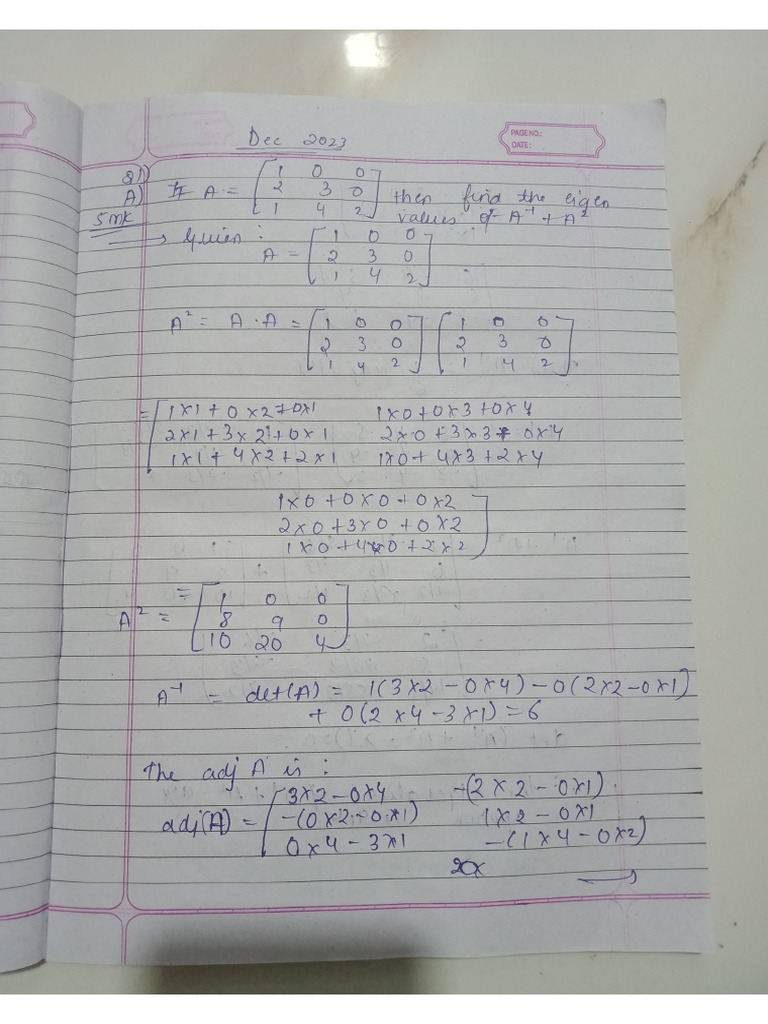 Dec 2023
PAGE NO.:
DATE:
Q1)
A) If A = [1 0 0
2 3 0
1 4 2] then find the eigen
values of A⁻¹ + A²
5mk
→ Given:
A = [1 0 0
2 3 0
1 4 2]
A² = A · A = [1 0 0
2 3 0
1 4 2] [1 0 0
2 3 0
1 4 2]
= [1×1 + 0×2 + 0×1 1×0 + 0×3 + 0×4
2×1 + 3×2 + 0×1 2×0 + 3×3 + 0×4
1×1 + 4×2 + 2×1 1×0 + 4×3 + 2×4
1×0 + 0×0 + 0×2
2×0 + 3×0 + 0×2
1×0 + 4×0 + 2×2]
=
A² = [1 0 0
8 9 0
10 20 4]
A⁻¹ = det(A) = 1(3×2 - 0×4) - 0(2×2 - 0×1)
+ 0(2×4 - 3×1) = 6
The adj A is:
adj(A) = [3×2 - 0×4 -(2×2 - 0×1)
-(0×2 - 0×1) 1×2 - 0×1
0×4 - 3×1 -(1×4 - 0×2)
→